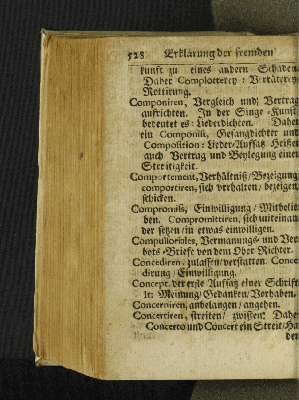 528 Erklärung der fremden
kunst zu eines andern Schaden
Daher Complotterey: Verräterey
Rottirung.
Componiren, Vergleich und Vertrag
aufrichten. In der Singe-Kunst
bedeutet es: Liederdichten. Daher
ein Componist, Gesangdichter und
Composition: Lieder-Auffsatz Heisset
auch Vertrag und Beylegung einer
Streitigkeit.
Comportement, Verhältniß/ Bezeigung
comportiren, sich verhalten/ bezeigen
schicken.
Compromiß, Einwilligung/ Mitbelie
ben. Compromittiren, sich miteinan
der setzen/ in etwas einwilligen.
Compulsoriales, Vermanungs- und Ver
bots-Briefe von dem Ober Richter.
Concediren, zulassen/ verstatten. Conce
dirung/ Einwilligung.
Concept, der erste Auffsatz einer Schrift
It: Meinung/ Gedanken/ Vorhaben.
Concerniren, anbelangen/ angehen.
Concertiren, streiten/ zwisten: Daher
Concerto und Concert ein Streit/ Ha
der